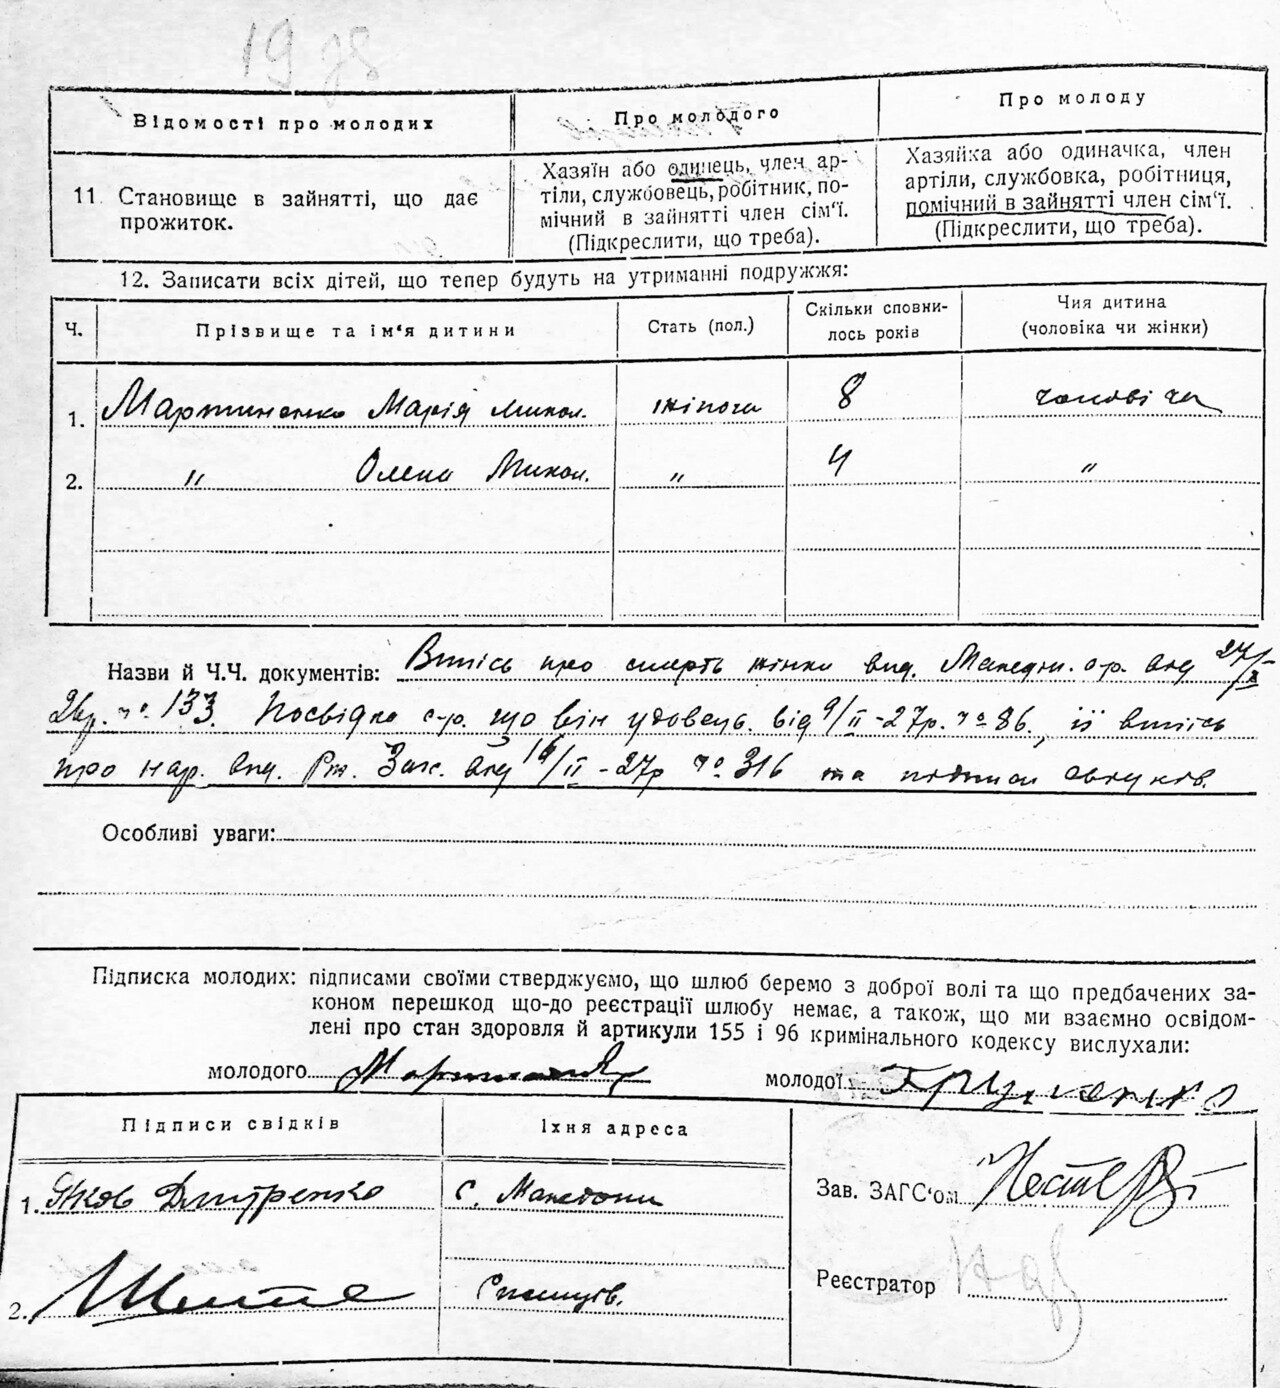 19
Відомості про молодих
Про молодого
Про молоду
11. Становище в зайнятті, що дає
прожиток.
Хазяїн або одинець, член ар-
тіли, службовець, робітник, по-
мічний в зайнятті член сім'ї.
(Підкреслити, що треба).
Хазяйка або одиначка, член
артіли, службовка, робітниця,
помічний в зайнятті член сім'ї.
(Підкреслити, що треба).
12. Записати всіх дітей, що тепер будуть на утриманні подружжя:
Ч.
Прізвище та ім'я дитини
Стать (пол.)
Скільки сповни-
лось років
Чия дитина
(чоловіка чи жінки)
1. Мартиненко Марія Микол. жіноча 8 чоловіча
2. " Олена Микол. " 4 "
Назви й Ч.Ч. документів: Впись про смерть жінки вид. Македон. с-р. від 27/X
26р. ч° 133. Посвідка с-р. що він удовець від 9/II-27р. ч° 86, її впись
про нар. вид. Заг. від 16/II-27р ч° 316 та підписи
Особливі уваги:
Підписка молодих: підписами своїми стверджуємо, що шлюб беремо з доброї волі та що предбачених за-
коном перешкод що-до реєстрації шлюбу немає, а також, що ми взаємно освідом-
лені про стан здоровля й артикули 155 і 96 кримінального кодексу вислухали:
молодого Мартиненко молодої Гриценко
Підписи свідків
Їхня адреса
1. Яков Дмитренко с. Македони
2.
Зав. ЗАГС'ом
Реєстратор